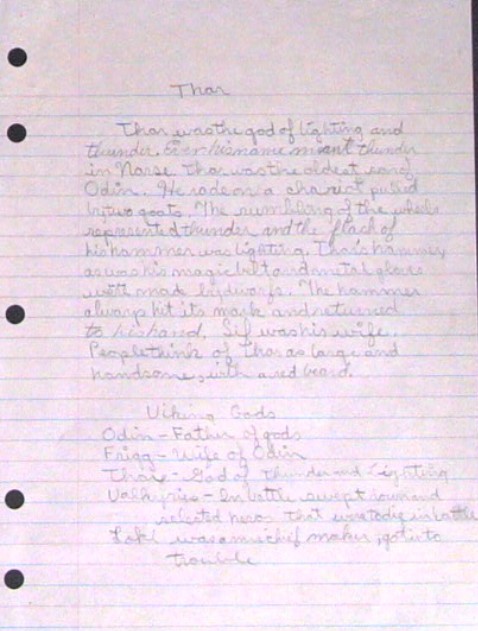 Thor
Thor was the god of lighting and
thunder. Even his name meant thunder
in Norse. Thor was the oldest son of
Odin. He rode on a chariot pulled
by two goats. The rumbling of the wheels
represented thunder and the flach of
his hammer was lighting. Thor's hammer,
as was his magic belt and metal gloves
were made by dwarfs. The hammer
always hit its mark and returned
to his hand. Sif was his wife.
People think of Thor as large and
handsome, with a red beard.
Viking Gods
Odin - Father of gods
Frigg - Wife of Odin
Thor - God of Thunder and Lighting
Valkyries - In battle swept down and
selected heros that were to die in battle
Loki was a mischief maker, got into
trouble